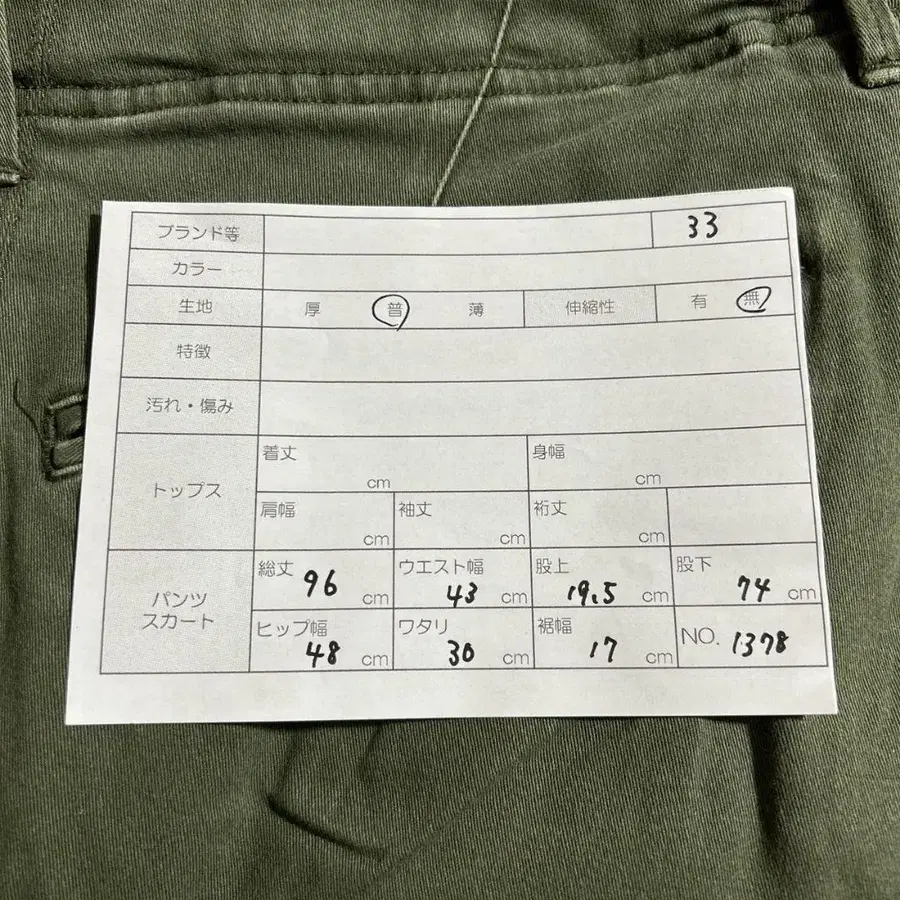 ブランド等 33
カラー
生地 厚 普 薄 伸縮性 有 無
特徴
汚れ・傷み
トップス
着丈 cm 身幅 cm
肩幅 cm 袖丈 cm 裄丈 cm
パンツ
スカート
総丈 96 cm ウエスト幅 43 cm 股上 19.5 cm 股下 74 cm
ヒップ幅 48 cm ワタリ 30 cm 裾幅 17 cm NO. 1378